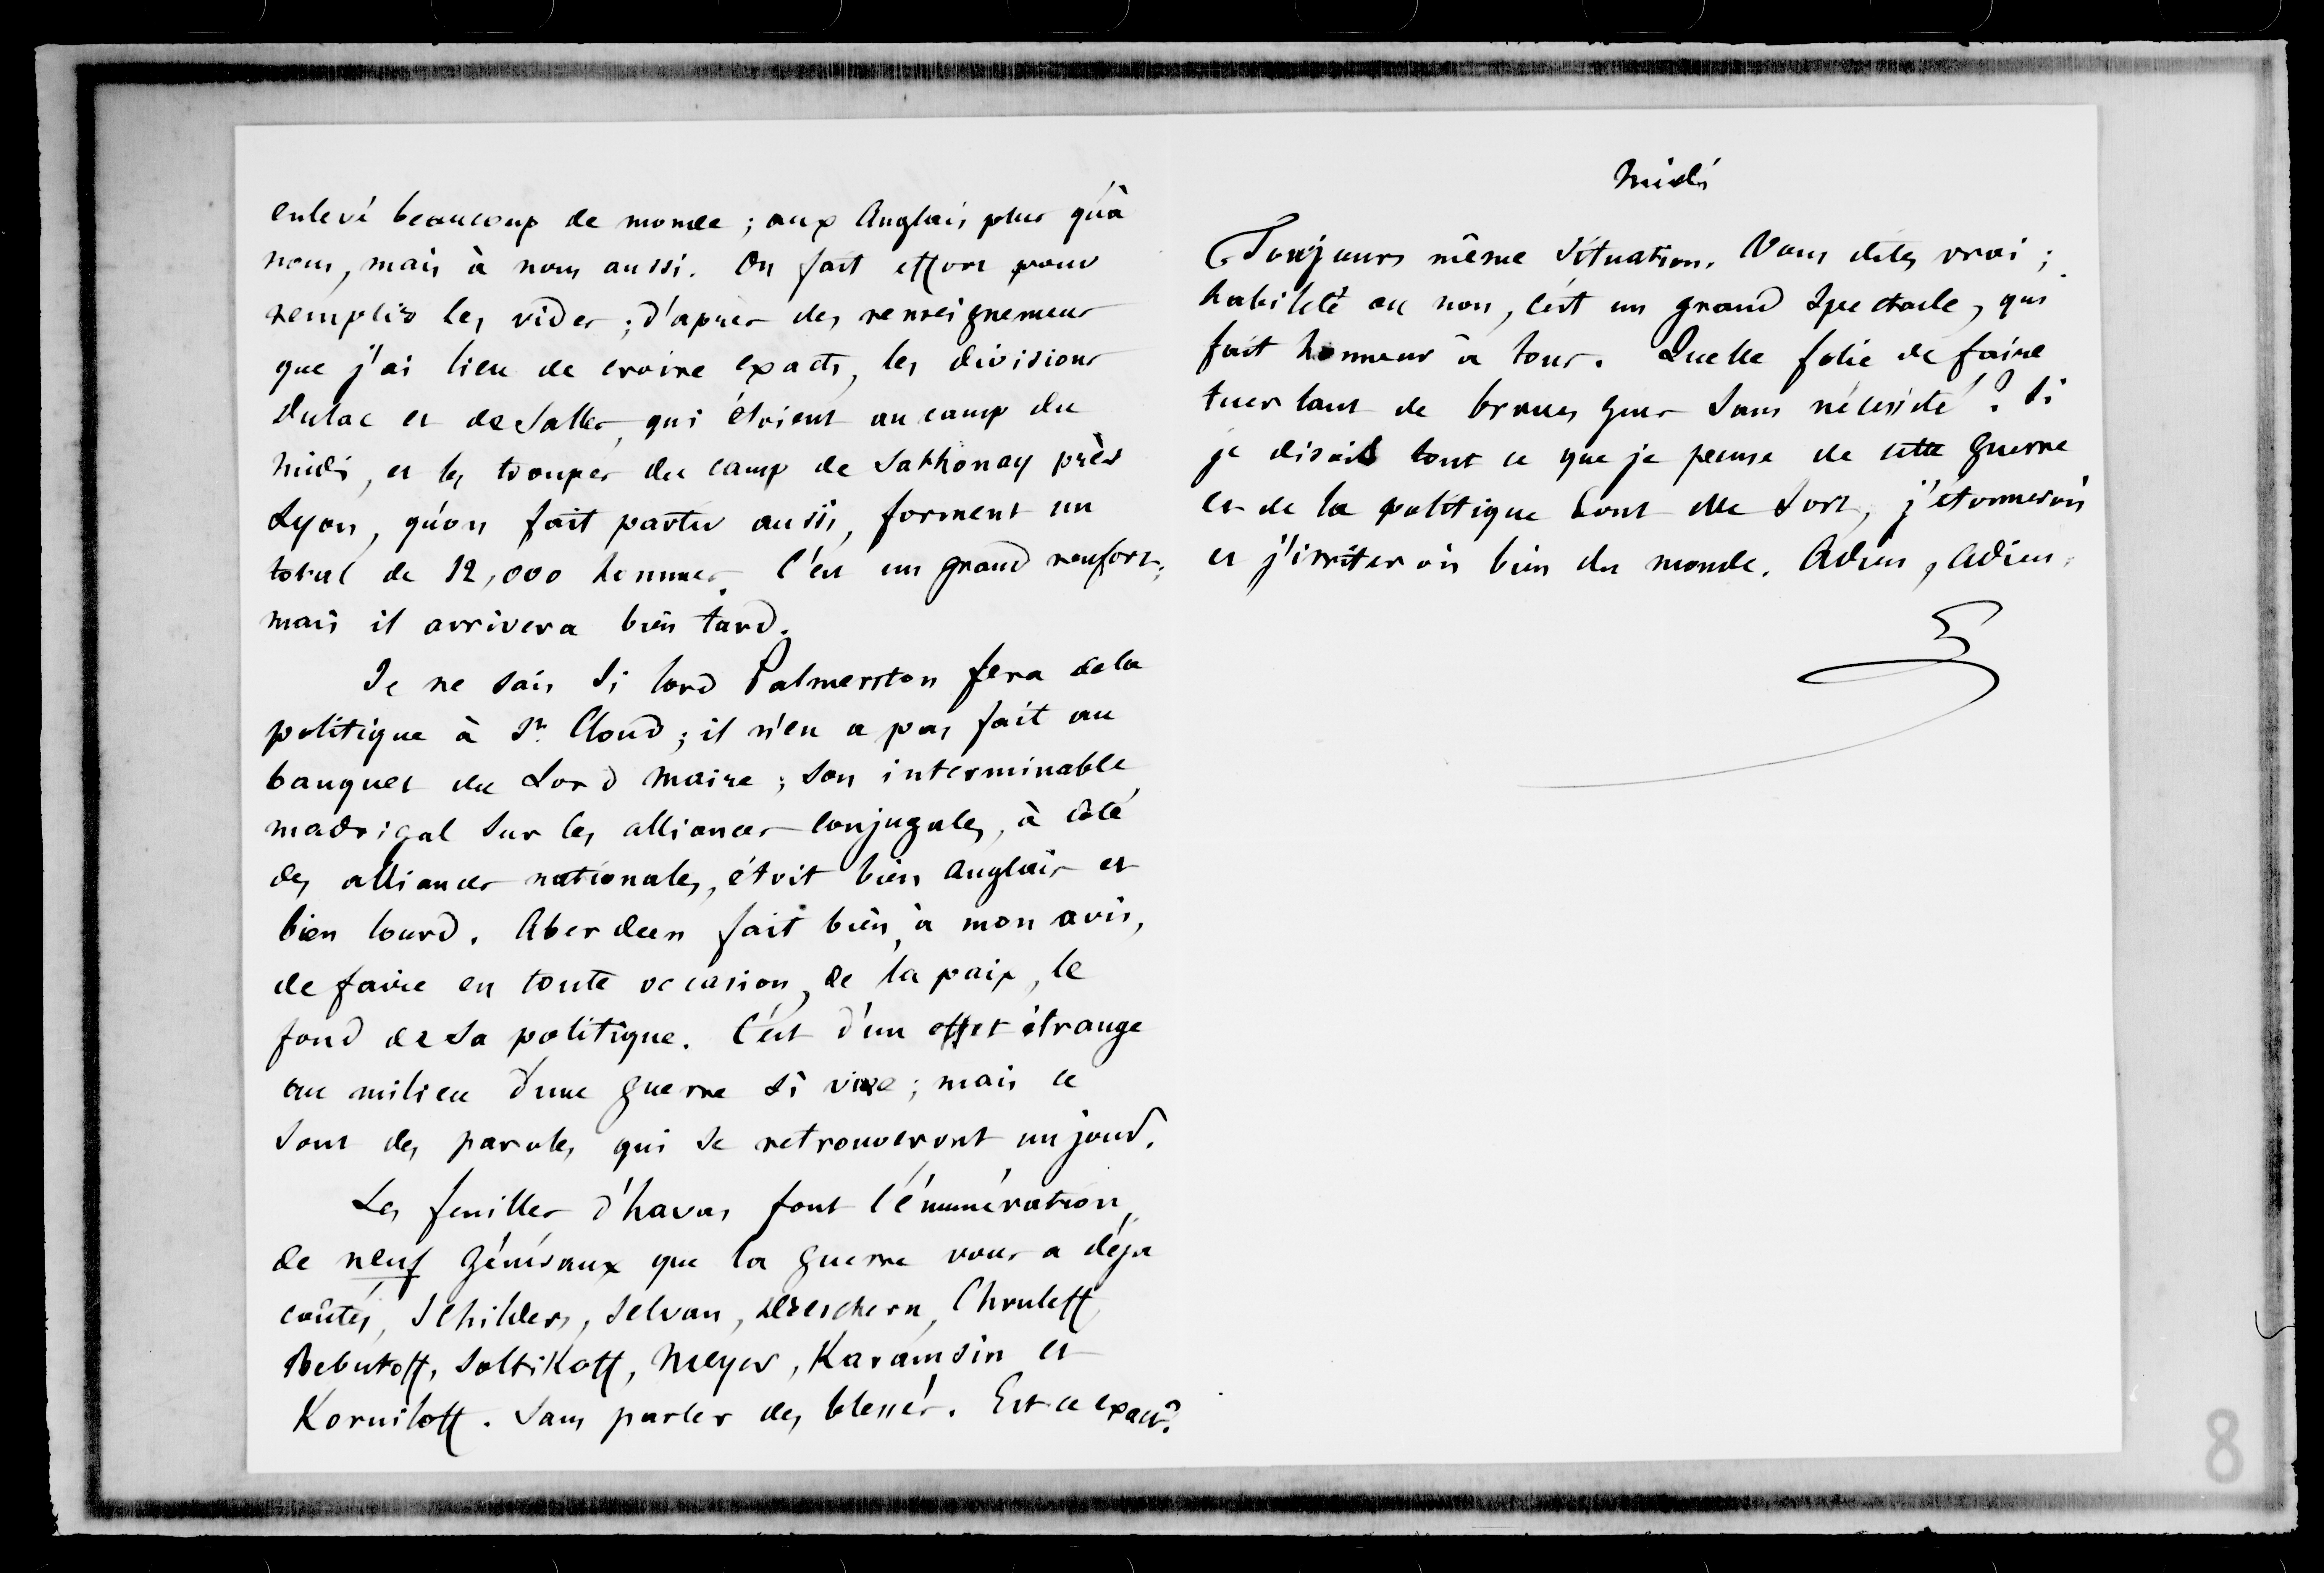 enlevé beaucoup de monde ; aux Anglais plus qu'à
nous, mais à nous aussi. On fait effort pour
remplir les vides ; d'après des renseignemens
que j'ai lieu de croire exacts, les divisions
Dulac et de Salles, qui étoient au camp du
midi, et les troupes du camp de Sathonay près
Lyon, qu'on fait partir aussi, forment un
total de 12,000 hommes. C'est un grand renfort ;
mais il arrivera bien tard.
Je ne sais si lord Palmerston fera de la
politique à St. Cloud ; il n'en a pas fait au
banquet du Lord Maire ; son interminable
madrigal sur les alliances conjugales, à côté
des alliances nationales, étoit bien Anglais et
bien lourd. Aberdeen fait bien, à mon avis,
de faire en toute occasion, de la paix, le
fond de sa politique. C'est d'un effet étrange
au milieu d'une guerre si vive ; mais ce
sont des paroles qui se retrouveront un jour.
Les feuilles d'havas font l'énumération
de neuf Généraux que la guerre vous a déjà
coûtés, Schilders, Selvan, Chruleff,
Bebutoff, Soltikoff, Meyer, Karamsin et
Korniloff. Sans parler des blessés. Est-ce exact ?
Midi
Toujours même situation. Vous dites vrai ;
habileté ou non, c'est un grand spectacle, qui
fait honneur à tous. Quelle folie de faire
tuer tant de braves gens sans nécessité ! Si
je disois tout ce que je pense de cette guerre
et de la politique dont elle sort, j'étonnerois
et j'irriterois bien du monde. Adieu, Adieu.
8